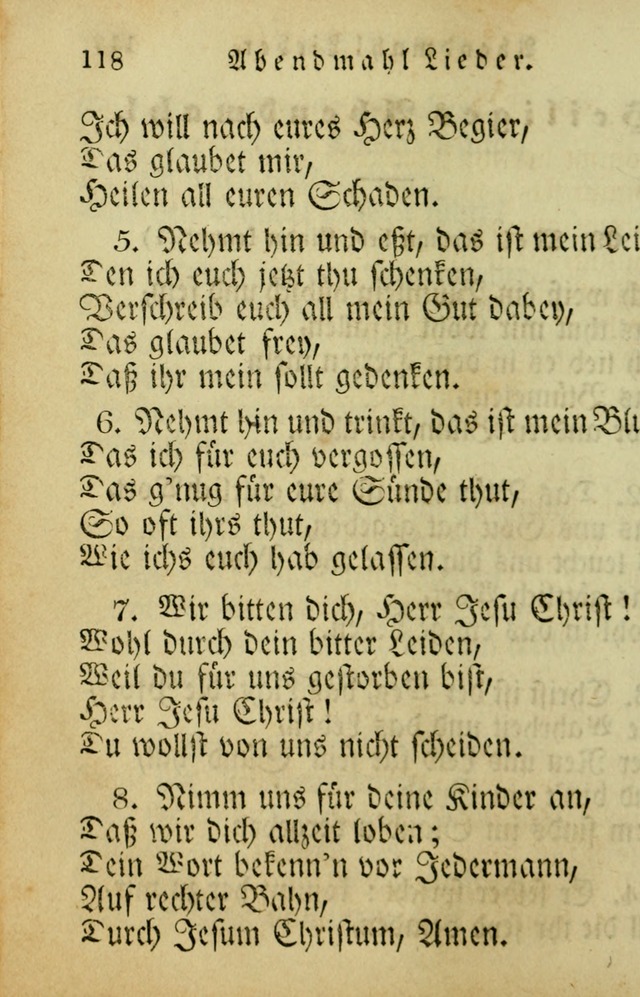 118 Abendmahl Lieder.
Ich will nach eures Herz Begier,
Das glaubet mir,
Heilen all euren Schaden.
5. Nehmt hin und eßt, das ist mein Lei
Den ich euch jetzt thu schenken,
Verschreib euch all mein Gut dabey,
Das glaubet frey,
Daß ihr mein sollt gedenken.
6. Nehmt hin und trinkt, das ist mein Blu
Das ich für euch vergossen,
Das g'nug für eure Sünde thut,
So oft ihrs thut,
Wie ichs euch hab gelassen.
7. Wir bitten dich, Herr Jesu Christ!
Wohl durch dein bitter Leiden,
Weil du für uns gestorben bist,
Herr Jesu Christ!
Du wollst von uns nicht scheiden.
8. Nimm uns für deine Kinder an,
Daß wir dich allzeit loben;
Dein Wort bekenn'n vor Jedermann,
Auf rechter Bahn,
Durch Jesum Christum, Amen.